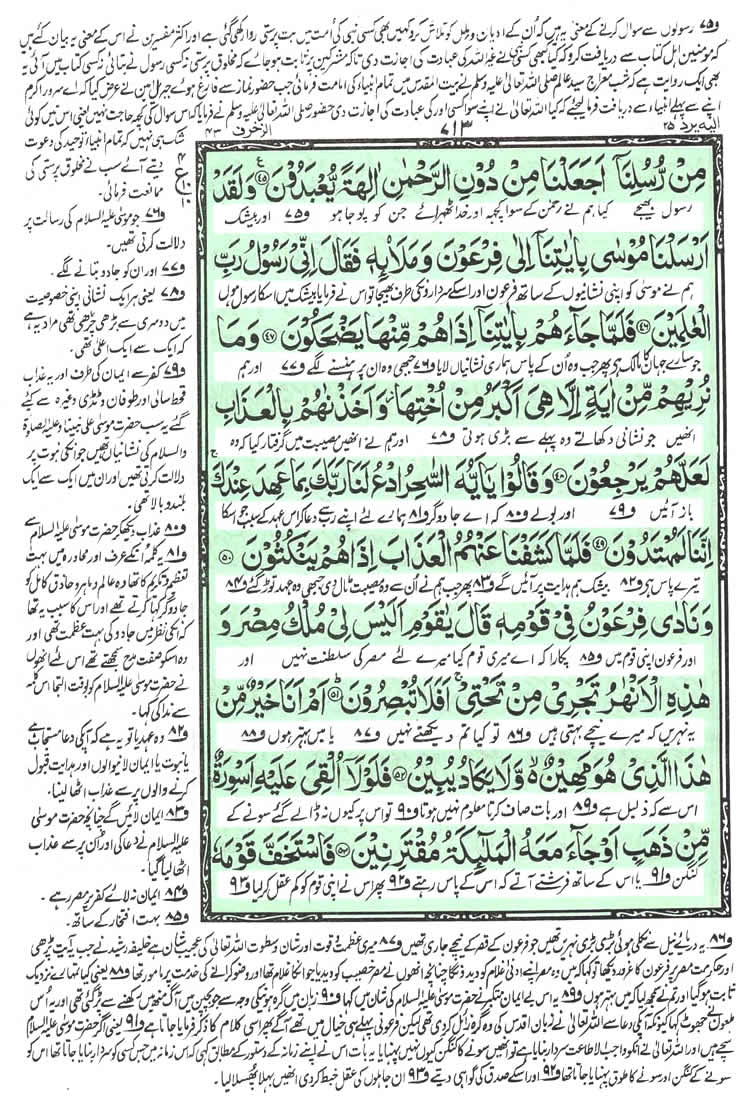 و۷۵ رسولوں سے سوال کرنے کے معنی یہ ہیں کہ اُن کے ادیان و ملل کو تلاش کرو کہیں بھی کسی نبی کی اُمت میں بت پرستی روا رکھی گئی ہے اور اکثر مفسرین نے اس کے معنی یہ بیان کئے ہیں
کہ مومنین اہل کتاب سے دریافت کرو کہ کیا کبھی کسی نبی نے غیر اللہ کی عبادت کی اجازت دی تاکہ مشرکین پر ثابت ہو جائے کہ مخلوق پرستی نہ کسی رسول نے بتائی نہ کسی کتاب میں آئی یہ
بھی ایک روایت ہے کہ شب معراج سید عالم صلی اللہ تعالیٰ علیہ وسلم نے بیت المقدس میں تمام انبیاء کی امامت فرمائی جب حضور نماز سے فارغ ہوئے جبریل امین نے عرض کیا کہ اے سرور اکرم
اپنے سے پہلے انبیاء سے دریافت فرما لیجئے کہ کیا اللہ تعالیٰ نے اپنے سوا کسی اور کی عبادت کی اجازت دی حضور صلی اللہ تعالیٰ علیہ وسلم نے فرمایا کہ اس سوال کی کچھ حاجت نہیں یعنی اس میں کوئی
الیہ یرد ۲۵
۷۱۳
الزخرف ۴۳
مِنْ رُّسُلِنَاۤ اَجَعَلْنَا مِنْ دُوْنِ الرَّحْمٰنِ اٰلِهَةً یُّعْبَدُوْنَ ﴿۴۵﴾ وَلَقَدْ
رسول بھیجے کیا ہم نے رحمٰن کے سوا کچھ اور خدا ٹھہرائے جن کو پوجا ہو و۷۵ اور بیشک
اَرْسَلْنَا مُوْسٰى بِاٰیٰتِنَاۤ اِلٰى فِرْعَوْنَ وَمَلَا۟ىِٕهٖ فَقَالَ اِنِّیْ رَسُوْلُ رَبِّ
ہم نے موسیٰ کو اپنی نشانیوں کے ساتھ فرعون اور اسکے سرداروں کی طرف بھیجا تو اس نے فرمایا بیشک میں اسکا رسول ہوں
الْعٰلَمِیْنَ ﴿۴۶﴾ فَلَمَّا جَآءَهُمْ بِاٰیٰتِنَاۤ اِذَا هُمْ مِّنْهَا یَضْحَكُوْنَ ﴿۴۷﴾ وَمَا
جو سارے جہان کا مالک ہے پھر جب وہ اُن کے پاس ہماری نشانیاں لایا و۷۶ جبھی وہ ان پر ہنسنے لگے و۷۷ اور ہم
نُرِیْهِمْ مِّنْ اٰیَةٍ اِلَّا هِیَ اَكْبَرُ مِنْ اُخْتِهَا وَاَخَذْنٰهُمْ بِالْعَذَابِ
انھیں جو نشانی دکھاتے وہ پہلے سے بڑی ہوتی و۷۸ اور ہم نے انھیں مصیبت میں گرفتار کیا کہ وہ
لَعَلَّهُمْ یَرْجِعُوْنَ ﴿۴۸﴾ وَقَالُوْا یٰۤاَیُّهَ السّٰحِرُ ادْعُ لَنَا رَبَّكَ بِمَا عَهِدَ عِنْدَكَ
باز آئیں و۷۹ اور بولے و۸۰ کہ اے جادوگر و۸۱ ہمارے لئے اپنے رب سے دعا کر اس عہد کے سبب جو اسکا
اِنَّنَا لَمُهْتَدُوْنَ ﴿۴۹﴾ فَلَمَّا كَشَفْنَا عَنْهُمُ الْعَذَابَ اِذَا هُمْ یَنْكُثُوْنَ ﴿۵۰﴾
تیرے پاس ہے و۸۲ بیشک ہم ہدایت پر آئیں گے و۸۳ پھر جب ہم نے اُن سے وہ مصیبت ٹال دی جبھی وہ عہد توڑ گئے و۸۴
وَنَادٰى فِرْعَوْنُ فِیْ قَوْمِهٖ قَالَ یٰقَوْمِ اَلَیْسَ لِیْ مُلْكُ مِصْرَ وَ
اور فرعون اپنی قوم میں و۸۵ پکارا کہ اے میری قوم کیا میرے لئے مصر کی سلطنت نہیں اور
هٰذِهِ الْاَنْهٰرُ تَجْرِیْ مِنْ تَحْتِیْ اَفَلَا تُبْصِرُوْنَ ﴿۵۱﴾ اَمْ اَنَا خَیْرٌ مِّنْ
یہ نہریں کہ میرے نیچے بہتی ہیں و۸۶ تو کیا تم دیکھتے نہیں و۸۷ یا میں بہتر ہوں و۸۸
هٰذَا الَّذِیْ هُوَ مَهِیْنٌ وَّلَا یَكَادُ یُبِیْنُ ﴿۵۲﴾ فَلَوْلَاۤ اُلْقِیَ عَلَیْهِ اَسْوِرَةٌ
اس سے کہ ذلیل ہے و۸۹ اور بات صاف کرتا معلوم نہیں ہوتا و۹۰ تو اس پر کیوں نہ ڈالے گئے سونے کے
مِّنْ ذَهَبٍ اَوْ جَآءَ مَعَهُ الْمَلٰٓىِٕكَةُ مُقْتَرِنِیْنَ ﴿۵۳﴾ فَاسْتَخَفَّ قَوْمَهٗ
کنگن و۹۱ یا اس کے ساتھ فرشتے آتے کہ اس کے پاس رہتے و۹۲ پھر اس نے اپنی قوم کو کم عقل کر لیا و۹۳
شک ہی نہیں کہ تمام انبیاء توحید کی دعوت
دیتے آئے سب نے مخلوق پرستی کی
ممانعت فرمائی۔
و۷۶ جو موسیٰ علیہ السلام کی رسالت پر
دلالت کرتی تھیں۔
و۷۷ اور ان کو جادو بتانے لگے۔
و۷۸ یعنی ہر ایک نشانی اپنی خصوصیت
میں دوسری سے بڑھی چڑھی تھی مراد یہ ہے
کہ ایک سے ایک اعلیٰ تھی۔
و۷۹ کفر سے ایمان کی طرف اور یہ عذاب
قحط سالی اور طوفان و ٹڈی وغیرہ سے کئے
گئے یہ سب حضرت موسیٰ علیٰ نبینا و علیہ الصلوٰۃ
والسلام کی نشانیاں تھیں جو انکی نبوت پر
دلالت کرتی تھیں اور ان میں ایک سے ایک
بلند و بالا تھی۔
و۸۰ عذاب دیکھ کر حضرت موسیٰ علیہ السلام سے
و۸۱ یہ کلمہ انکے عرف اور محاورہ میں بہت
تعظیم و تکریم کا تھا وہ عالم و ماہر و حاذق کامل کو
جادوگر کہا کرتے تھے اور اس کا سبب یہ تھا
کہ انکی نظر میں جادو کی بہت عظمت تھی اور
وہ اسکو صفت مدح سمجھتے تھے اس لئے انھوں
نے حضرت موسیٰ علیہ السلام کو بوقت التجا اس کلمہ
سے ندا کی کہا۔
و۸۲ وہ عہد یا تو یہ ہے کہ آپکی دعا مستجاب ہے
یا نبوت یا ایمان لانیوالوں اور ہدایت قبول
کرنے والوں پر سے عذاب اٹھا لینا۔
و۸۳ ایمان لائیں گے چنانچہ حضرت موسیٰ
علیہ السلام نے دعا کی اور اُن پر سے عذاب
اٹھا لیا گیا۔
و۸۴ ایمان نہ لائے کفر پر مصر رہے۔
و۸۵ بہت افتخار کے ساتھ۔
و۸۶ یہ دریائے نیل سے نکلی ہوئی بڑی بڑی نہریں تھیں جو فرعون کے قصر کے نیچے جاری تھیں و۸۷ میری عظمت و قوت اور شان و سطوت اللہ تعالیٰ کی عجیب شان ہے خلیفہ رشید نے جب یہ آیت پڑھی
اور حکومت مصر پر فرعون کا غرور دیکھا تو کہا کہ میں وہ مصر اپنے ادنیٰ غلام کو دے دونگا چنانچہ انھوں نے مصر خصیب کو دیدیا جو انکا غلام تھا اور وضو کرانے کی خدمت پر مامور تھا و۸۸ یعنی کیا تمہارے نزدیک
ثابت ہو گیا اور تم نے سمجھ لیا کہ میں بہتر ہوں و۸۹ یہ اس بے ایمان متکبر نے حضرت موسیٰ علیہ السلام کی شان میں کہا و۹۰ زبان میں گرہ ہونیکی وجہ سے جو بچپن میں آگ منھ میں رکھنے سے پڑ گئی تھی اور یہ اُس
ملعون نے جھوٹ کہا کیونکہ آپکی دعا سے اللہ تعالیٰ نے زبان اقدس کی وہ گرہ زائل کر دی تھی لیکن فرعونی پہلے ہی خیال میں تھے آگے پھر اسی کلام کا ذکر فرمایا جاتا ہے و۹۱ یعنی اگر حضرت موسیٰ علیہ السلام
سچے ہیں اور اللہ تعالیٰ نے انکو واجب الاطاعت سردار بنایا ہے تو انھیں سونے کا کنگن کیوں نہیں پہنایا یہ بات اس نے اپنے زمانہ کے دستور کے مطابق کہی کہ اس زمانہ میں جس کسی کو سردار بنایا جاتا تھا اس کو
سونے کے کنگن اور سونے کا طوق پہنایا جاتا تھا و۹۲ اور اسکے صدق کی گواہی دیتے و۹۳ ان جاہلوں کی عقل خبط کر دی انھیں بہلا پھسلا لیا۔